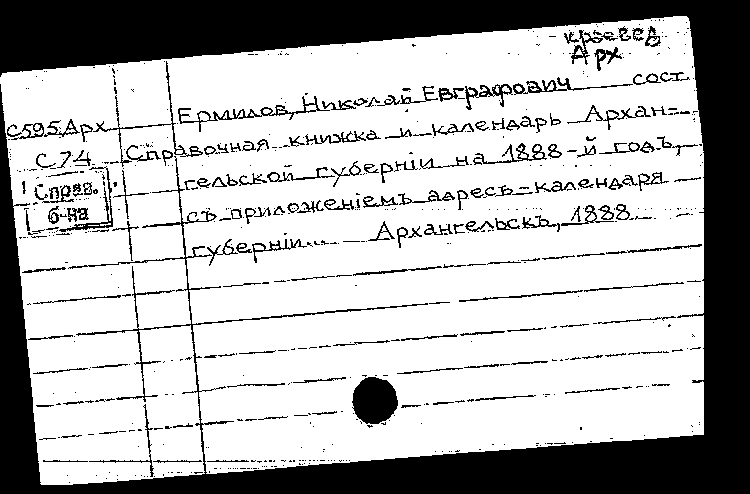 краевед
Арх
С595.Арх
С74
Справ.
б-ка
Ермилов, Николай Евграфович сост
Справочная книжка и календарь Архан=
гельской губерніи на 1888-й годъ,
съ приложеніемъ адресъ-календаря
губерніи... Архангельскъ, 1888